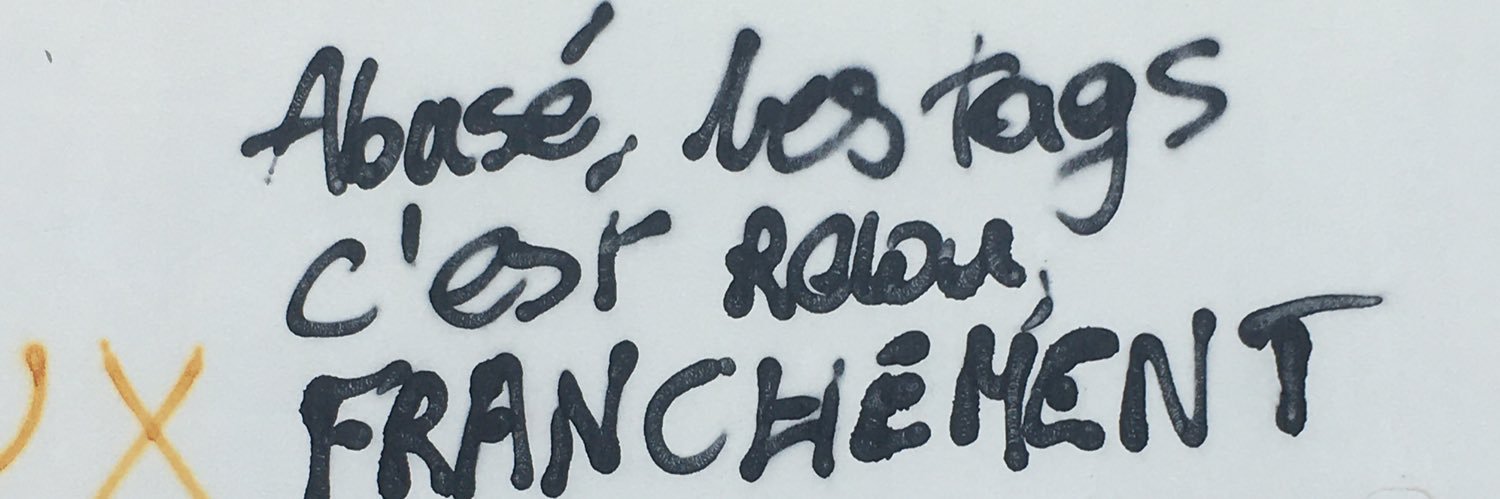 Abusé, les tags
c'est relou,
FRANCHÉMENT
UX